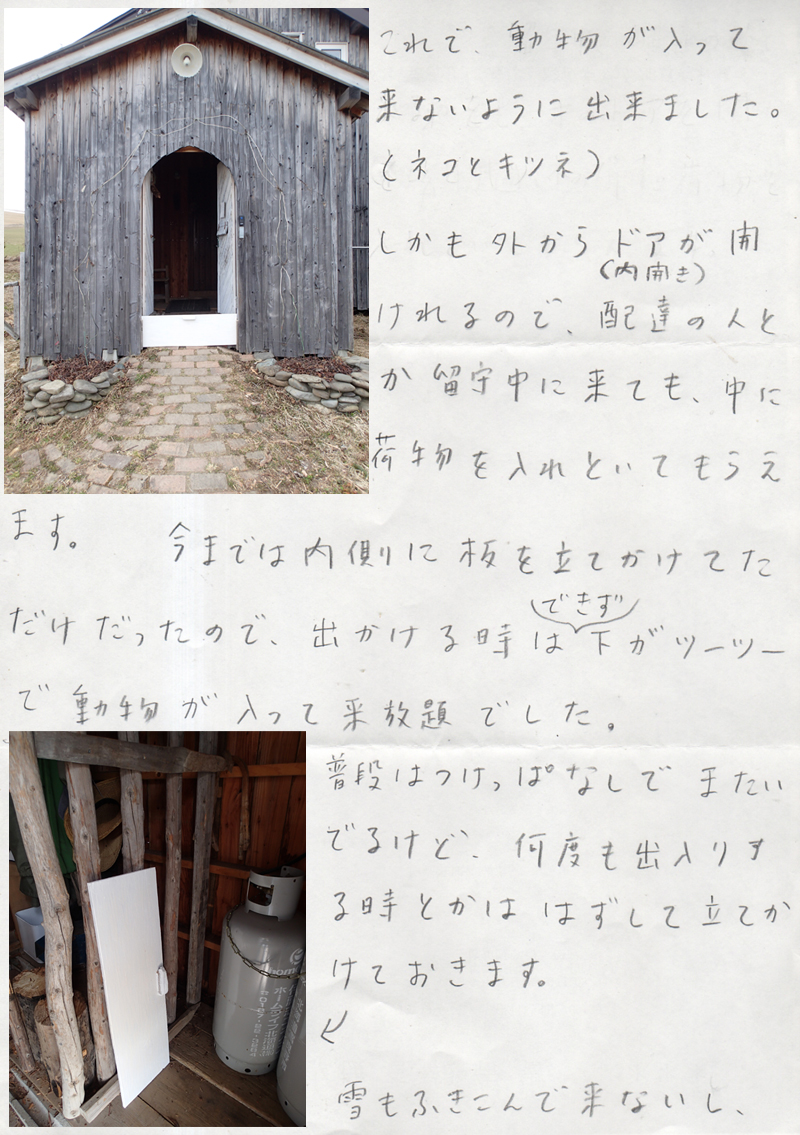 これで、動物が入って
来ないように出来ました。
(ネコとキツネ)
しかも外からドアが開
(内開き)
けれるので、配達の人と
か留守中に来ても、中に
荷物を入れといてもらえ
ます。 今までは内側に板を立てかけてた
できず
だけだったので、出かける時は下がツーツー
で動物が入って来放題でした。
普段はつけっぱなしでまたい
でるけど、何度も出入りす
る時とかははずして立てか
けておきます。
雪もふきこんで来ないし、